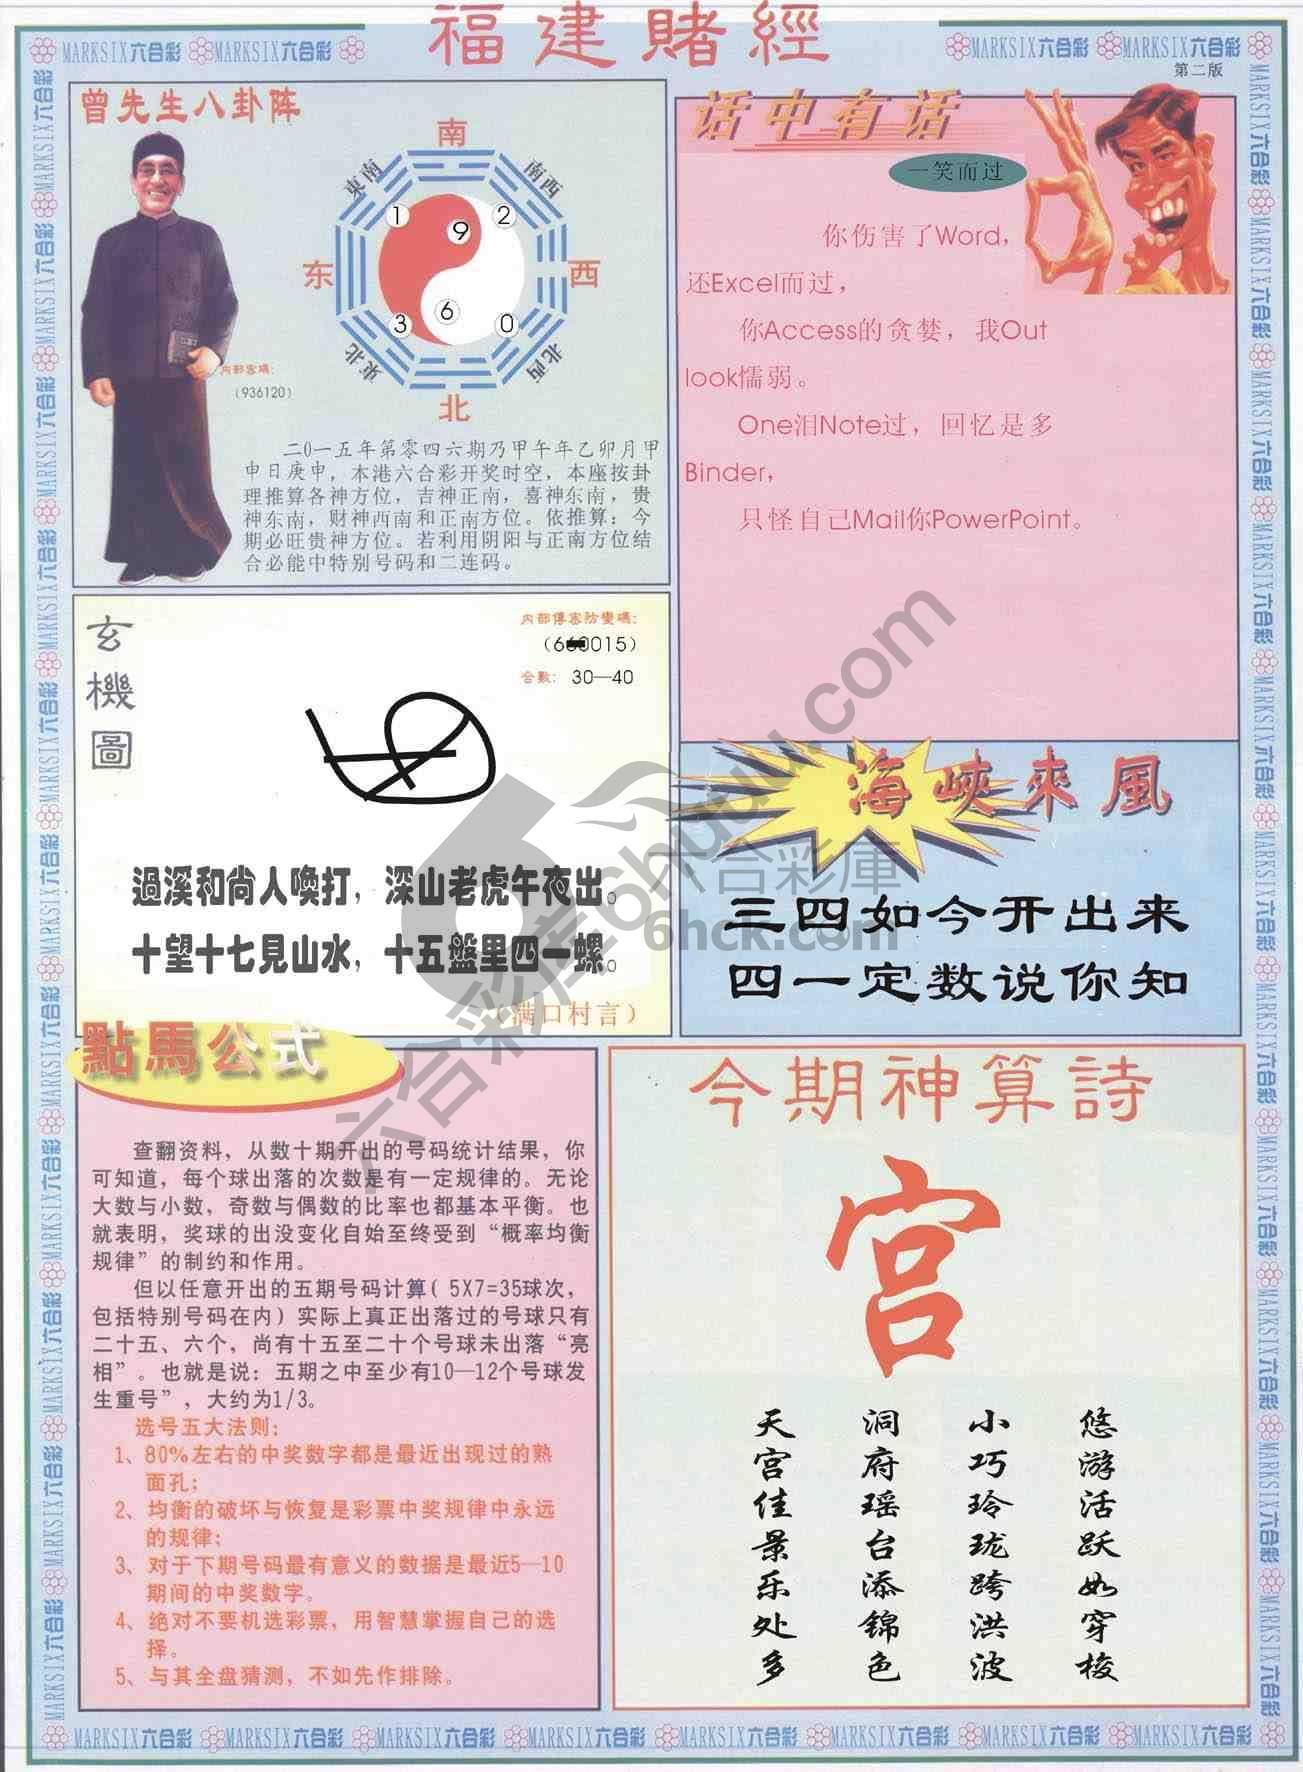 福建賭經
MARKSIX六合彩 MARKSIX六合彩
MARKSIX六合彩 MARKSIX六合彩
第二版
曾先生八卦阵
南
東南
南西
1
9
2
东
西
3
6
0
東北
北西
北
内部密碼：
（936120）
二0一五年第零四六期乃甲午年乙卯月甲
申日庚申，本港六合彩开奖时空，本座按卦
理推算各神方位，吉神正南，喜神东南，贵
神东南，财神西南和正南方位。依推算：今
期必旺贵神方位。若利用阴阳与正南方位结
合必能中特别号码和二连码。
话中有话
一笑而过
你伤害了Word，
还Excel而过，
你Access的贪婪，我Out
look懦弱。
One泪Note过，回忆是多
Binder，
只怪自己Mail你PowerPoint。
玄機圖
内部傳密防變碼：
合數：30—40
過溪和尚人喚打，深山老虎午夜出。
十望十七見山水，十五盤里四一螺。
（满口村言）
海峽來風
三四如今开出来
四一定数说你知
點馬公式
查翻资料，从数十期开出的号码统计结果，你
可知道，每个球出落的次数是有一定规律的。无论
大数与小数，奇数与偶数的比率也都基本平衡。也
就表明，奖球的出没变化自始至终受到“概率均衡
规律”的制约和作用。
但以任意开出的五期号码计算（5X7=35球次，
包括特别号码在内）实际上真正出落过的号球只有
二十五、六个，尚有十五至二十个号球未出落“亮
相”。也就是说：五期之中至少有10—12个号球发
生重号”，大约为1/3。
选号五大法则：
1、80%左右的中奖数字都是最近出现过的熟
面孔；
2、均衡的破坏与恢复是彩票中奖规律中永远
的规律；
3、对于下期号码最有意义的数据是最近5—10
期间的中奖数字。
4、绝对不要机选彩票，用智慧掌握自己的选
择。
5、与其全盘猜测，不如先作排除。
今期神算詩
宫
天宫佳景乐处多
洞府瑶台添锦色
小巧玲珑跨洪波
悠游活跃如穿梭
六合彩库6huuu.com
六合彩庫
6hck.com
MARKSIX六合彩 MARKSIX六合彩 MARKSIX六合彩 MARKSIX六合彩 MARKSIX六合彩 MARKSIX六合彩 MARKSIX六合彩 MARKSIX六合彩